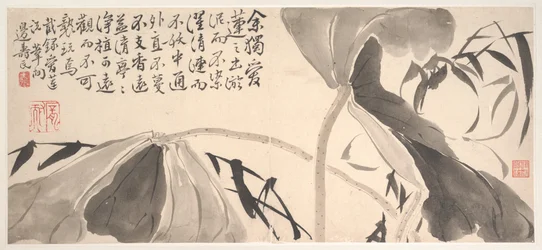 余獨愛
蓮之出淤
泥而不染
濯清漣而
不妖中通
外直不蔓
不支香遠
益清亭亭
淨植可遠
觀而不可
褻玩焉
錄愛蓮
說葦間
邊壽民